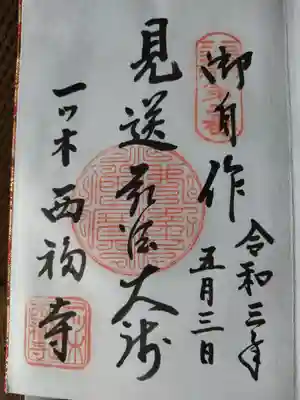 令和三年
五月三日
御自作
見送弘法大師
一ツ木西福寺